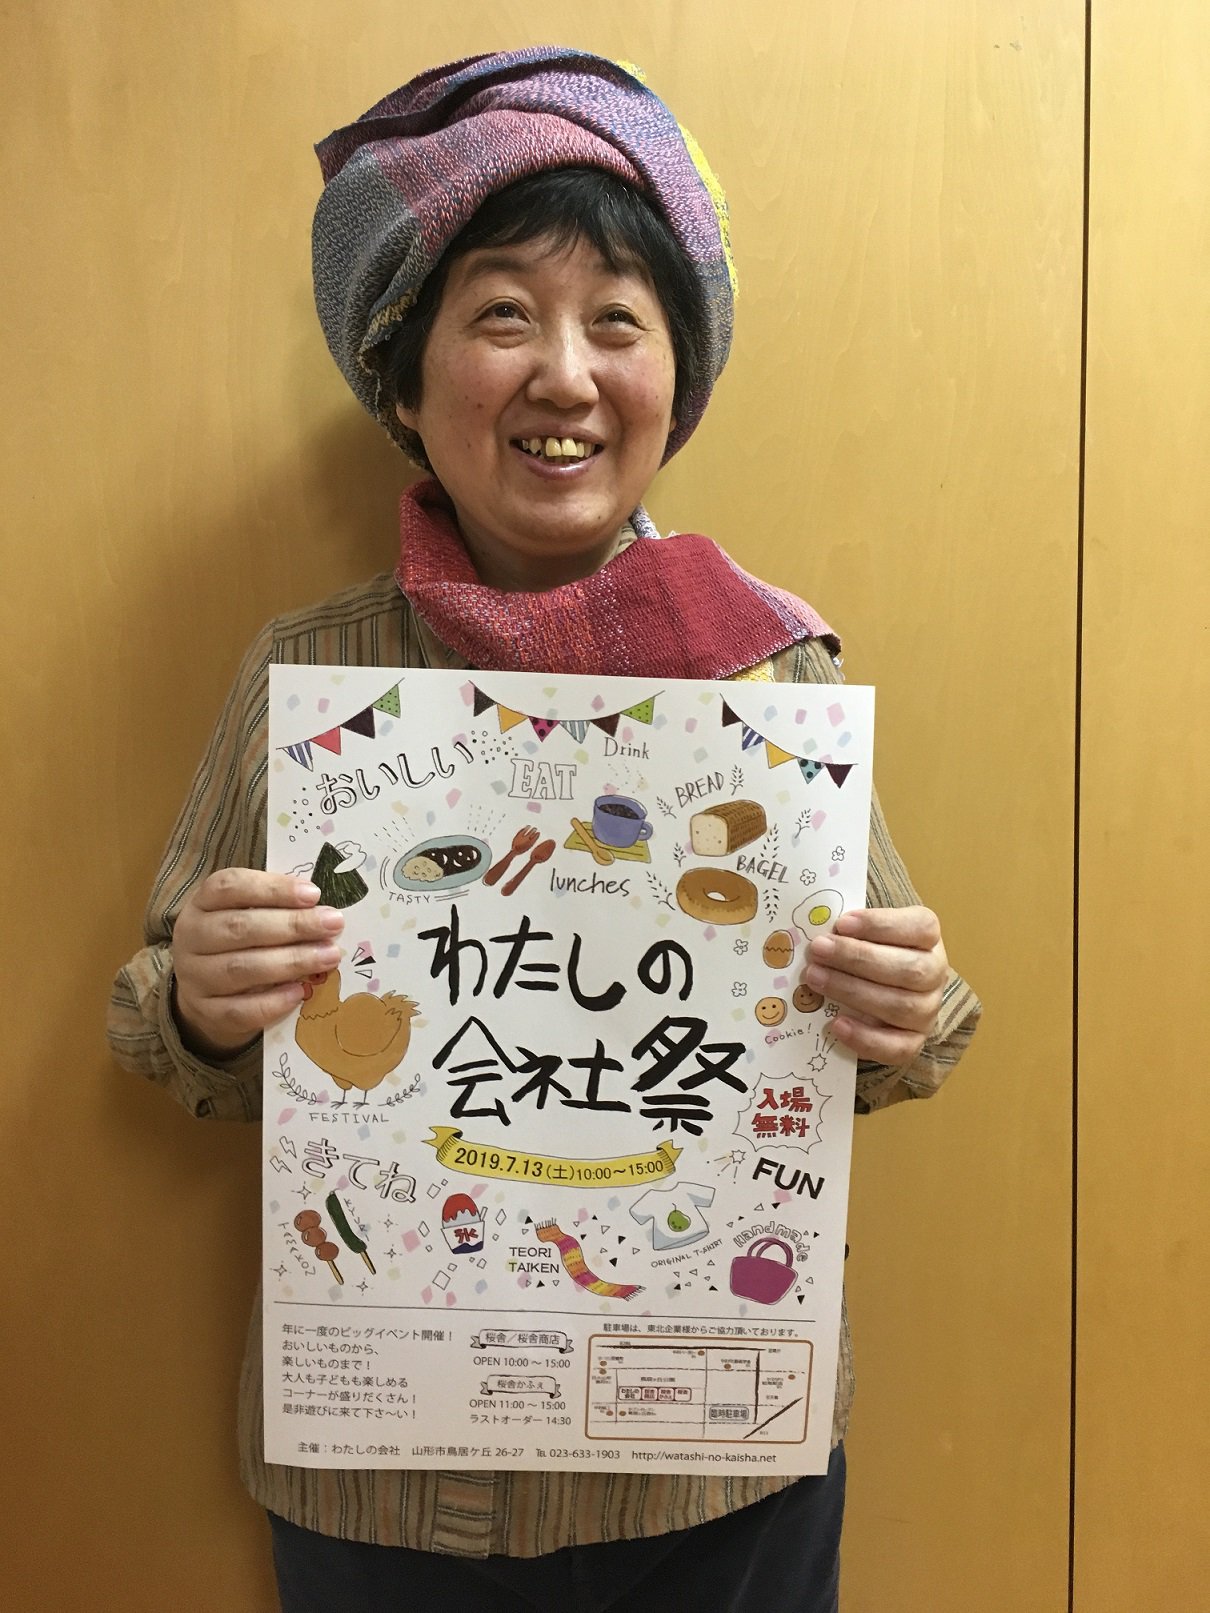 おいしい
EAT
Drink
BREAD
BAGEL
TASTY
lunches
わたしの
会社祭
Cookie!
FESTIVAL
入場
無料
2019.7.13(土)10:00～15:00
きてね
FUN
氷
TEORI
TAIKEN
ORIGINAL T-SHIRT
Handmade
年に一度のビッグイベント開催！
おいしいものから、
楽しいものまで！
大人も子どもも楽しめる
コーナーが盛りだくさん！
是非遊びに来て下さ～い！
桜舎／桜舎商店
OPEN 10:00 ～ 15:00
桜舎かふぇ
OPEN 11:00 ～ 15:00
ラストオーダー 14:30
駐車場は、東北企業様からご協力頂いております。
わたしの
会社
桜舎
商店
桜舎
かふぇ
臨時駐車場
主催：わたしの会社　山形市鳥居ケ丘 26-27　℡ 023-633-1903　http://watashi-no-kaisha.net